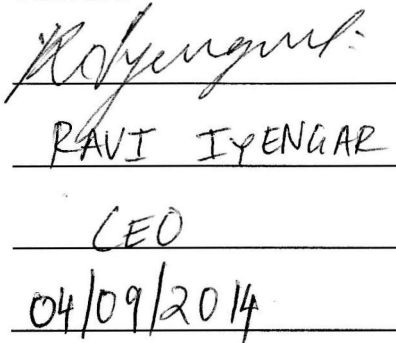 RAVI IYENGAR
CEO
04/09/2014